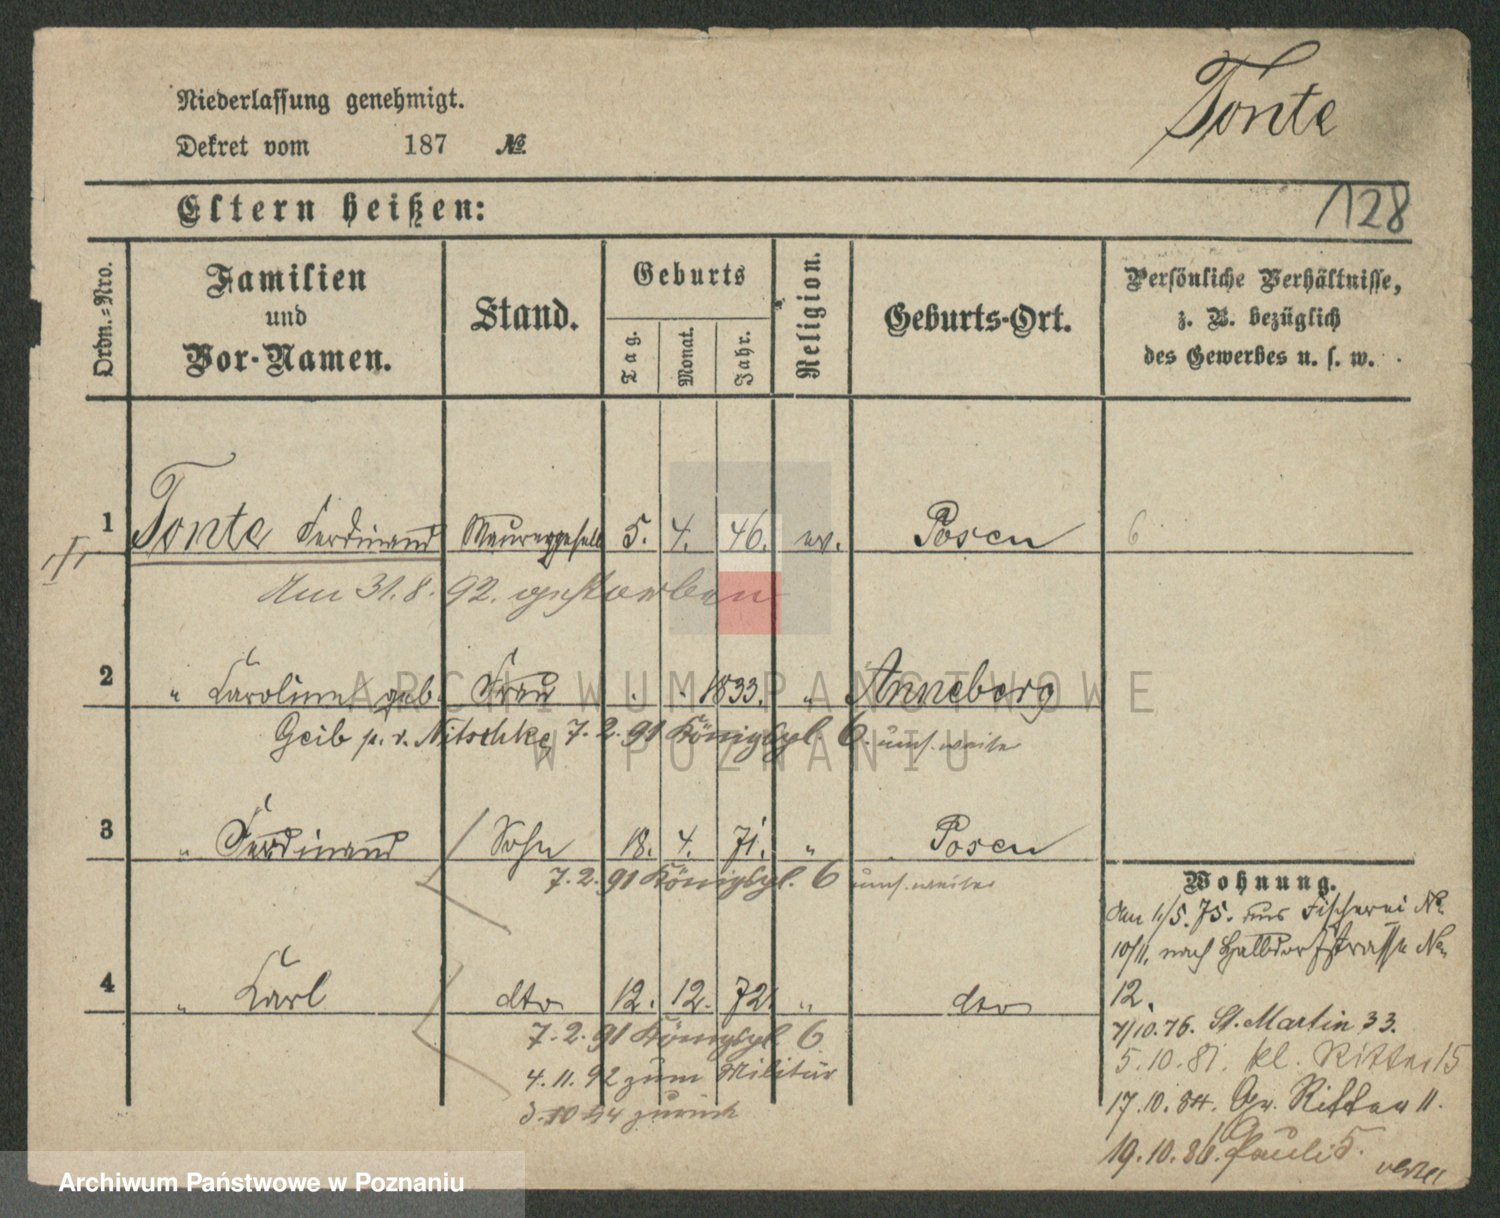 Tonte
Niederlassung genehmigt.
Dekret vom 187 №
128
Eltern heißen:
Ordn.-Nro.
Familien
und
Vor-Namen.
Stand.
Geburts
Tag.
Monat.
Jahr.
Religion.
Geburts-Ort.
Persönliche Verhältnisse,
z. B. bezüglich
des Gewerbes u. s. w.
1 Tonte Ferdinand Maurergesell 5. 4. 46. ev. Posen 6
Am 31.8.92. gestorben
2 " Caroline geb. Frau . . 1833. " Anneberg
Geib p. v. Nitschke 7.2.91 Königspl. 6. umf. weiter
3 " Ferdinand Sohn 18. 4. 71. " Posen
7.2.91 Königspl. 6 umf. weiter
4 " Carl dto 12. 12. 72. " dto
7.2.91 Königspl. 6
4.11.92 zum Militär
zurück
Wohnung.
Am 1/5.75. aus Fischerei No
10/11, nach Halbdorfstrasse No
12.
7/10.76. St. Martin 33.
5.10.81. kl. Ritter 15
17.10.84. Gr. Ritter 11.
19.10.86. Pauli 5.
ARCHIWUM PAŃSTWOWE
W POZNANIU
Archiwum Państwowe w Poznaniu